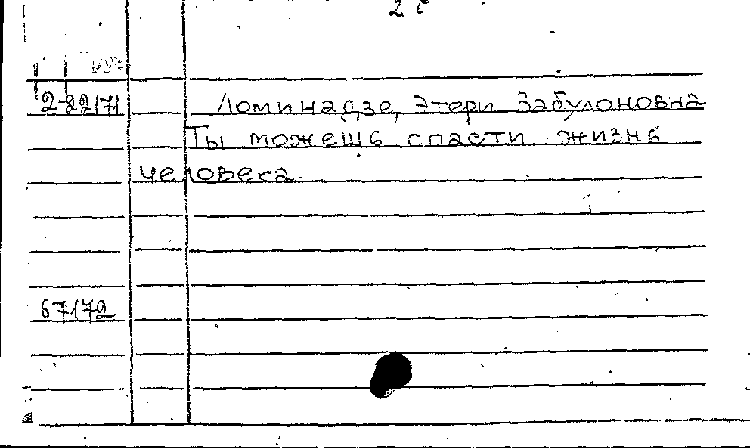 2-22171
Ломинадзе, Этери Забулоновна
Ты можешь спасти жизнь
человека
67172